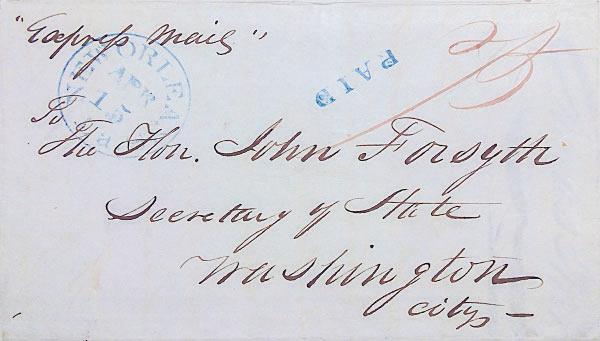 "Express Mail"
NEW ORLEA
APR
15
PAID
75
To
The Hon. John Forsyth
Secretary of State
Washington
City